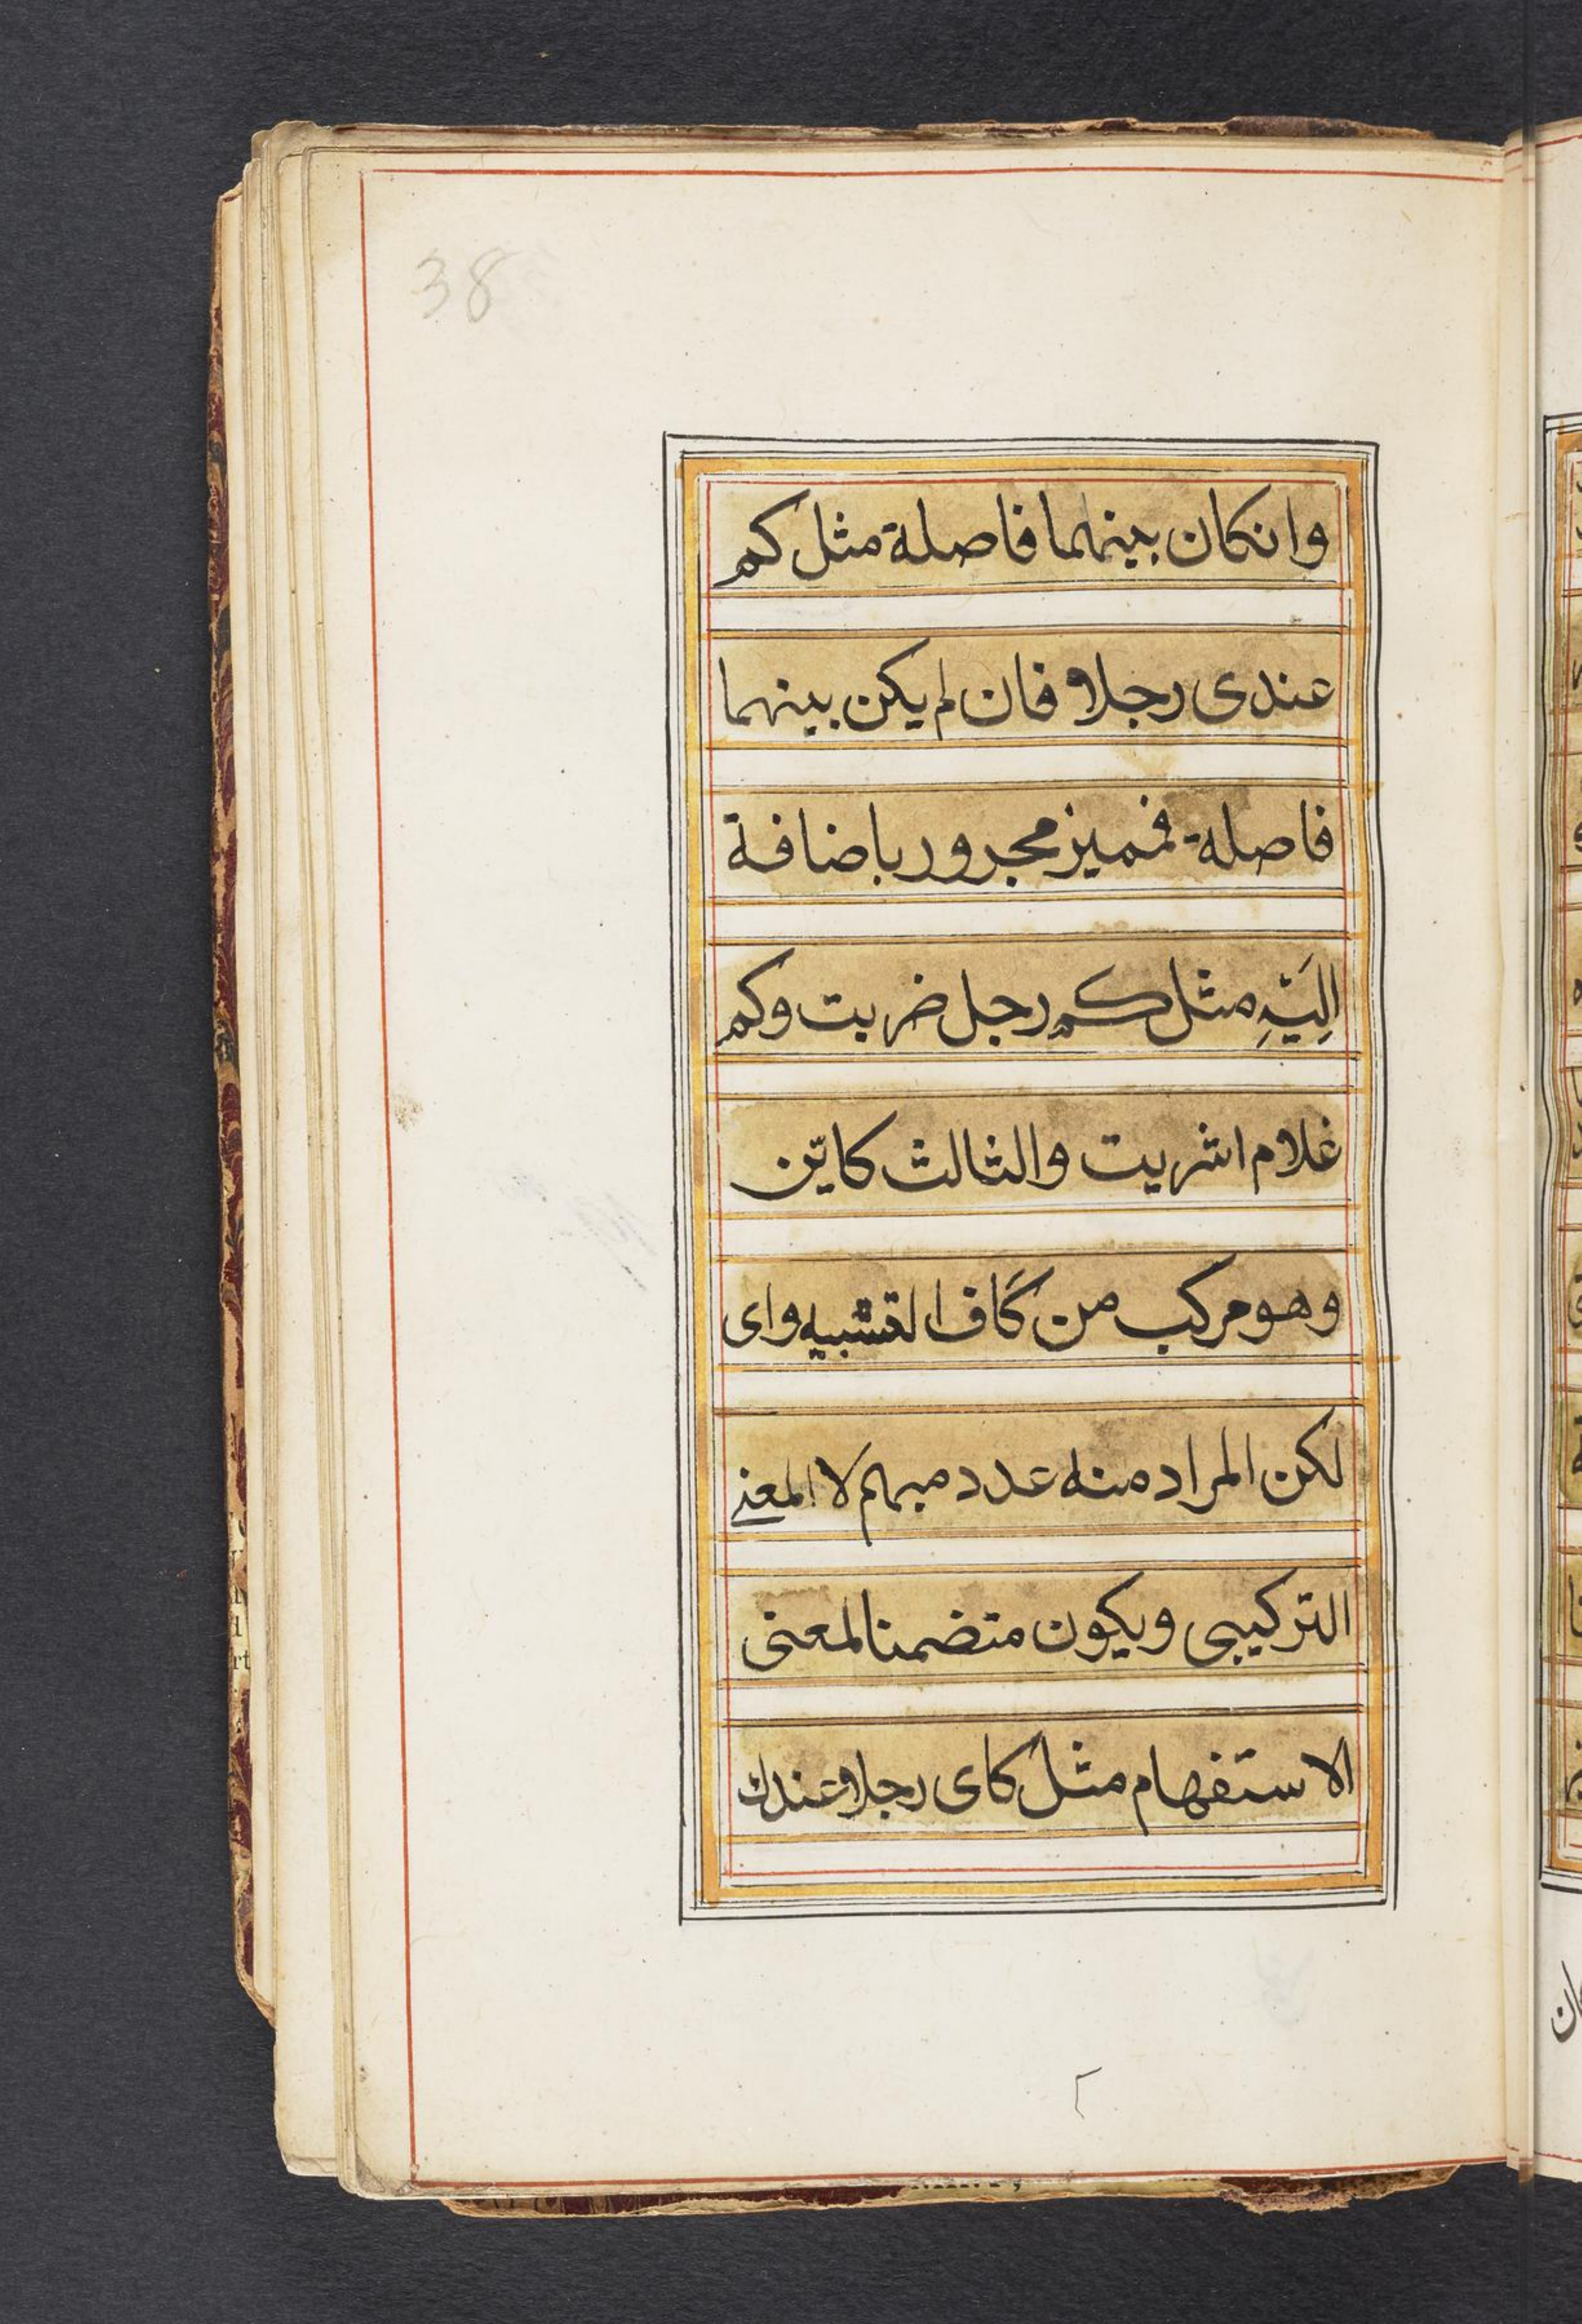 38
وانكان بينهما فاصلة مثل كم
عندى رجلا فان لم يكن بينهما
فاصلة فمميز مجرور باضافة
اِلَيْهِ مثل كم رجل ضربت وكم
غلام اشريت والثالث كايّن
وهو مركب من كاف التشبيه واى
لكن المراد منه عدد مبهم لا المعنى
التركيبى ويكون متضمنا لمعنى
الاستفهام مثل كاى رجلا عندك